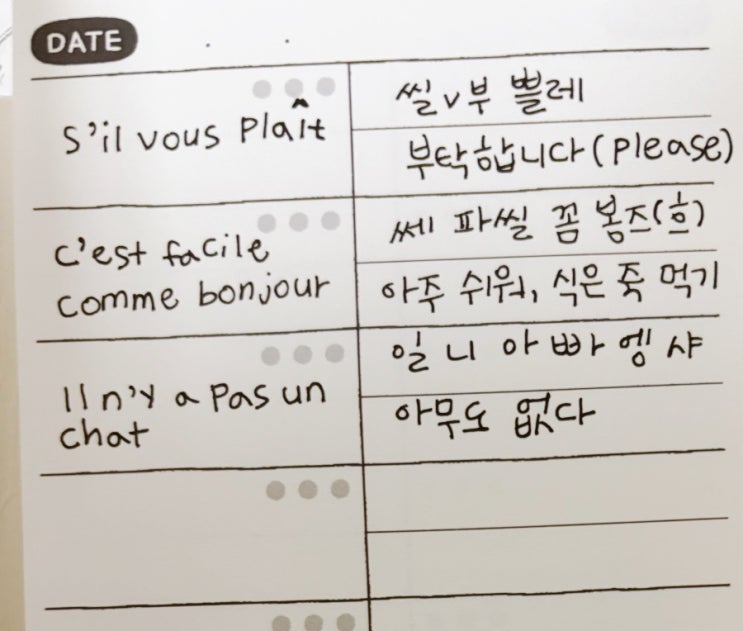 DATE
S'il vous Plaît
씰v부 쁠레
부탁합니다(Please)
C'est facile
comme bonjour
쎄 파씰 꼼 봉즈(흐)
아주 쉬워, 식은 죽 먹기
Il n'y a Pas un
chat
일 니 아 빠 엥 샤
아무도 없다